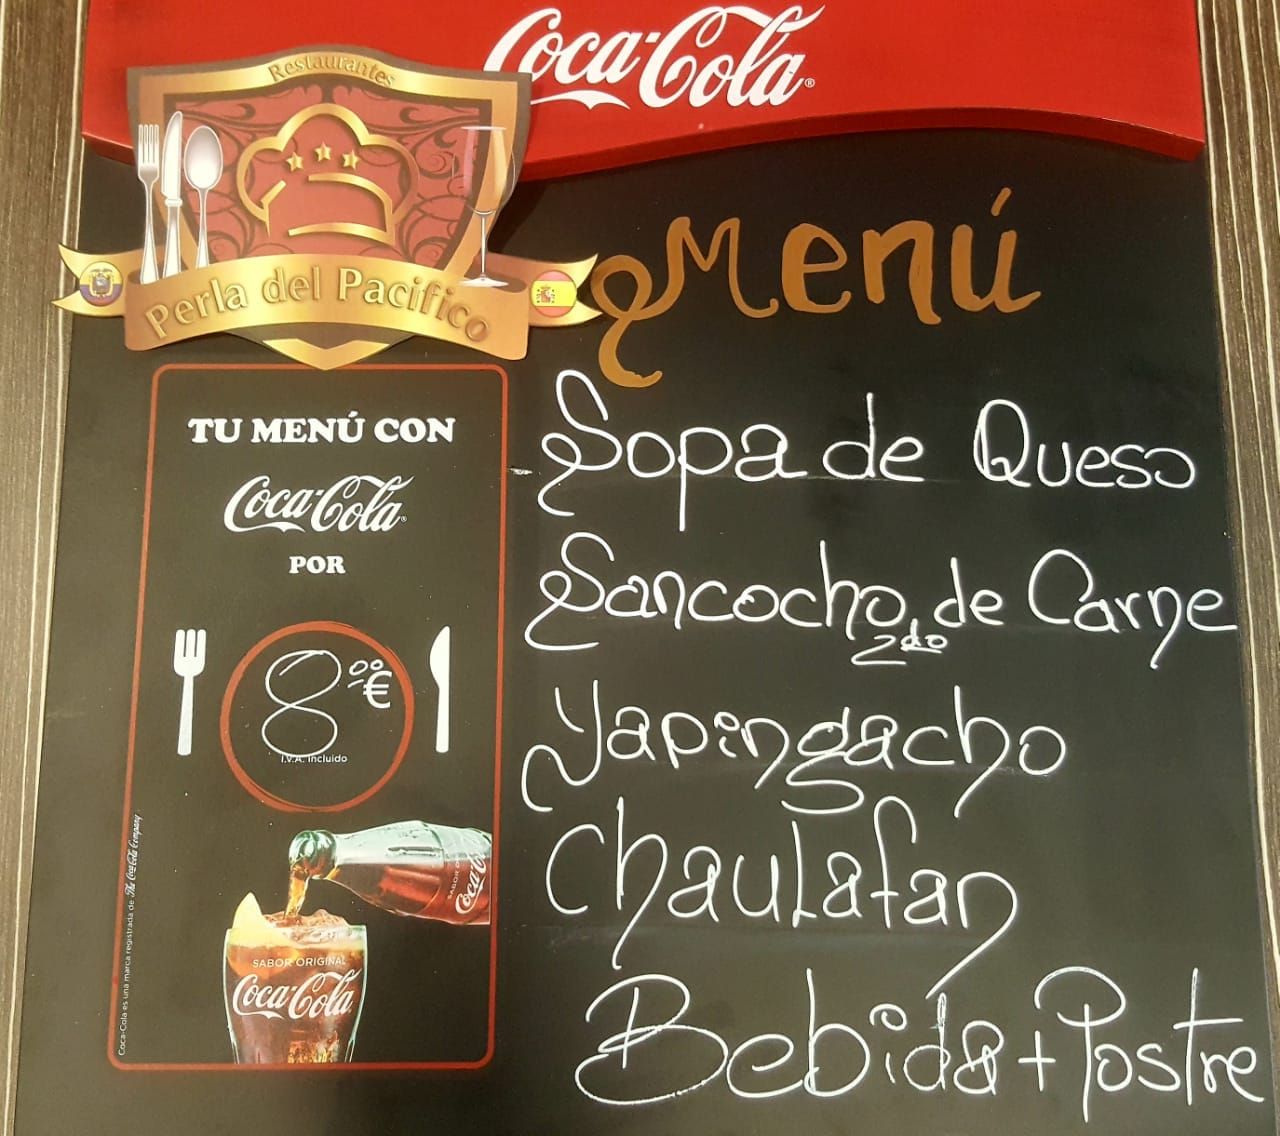 Coca-Cola®
Restaurantes
Perla del Pacifico
Menú
TU MENÚ CON
Coca-Cola®
POR
8,00 €
I.V.A. Incluido
Coca-Cola es una marca registrada de The Coca-Cola Company
SABOR O
Coca-C
SABOR ORIGINAL
Coca-Cola
Sopa de Queso
Sancocho de Carne
2do
Yapingacho
Chaulafan
Bebida + Postre